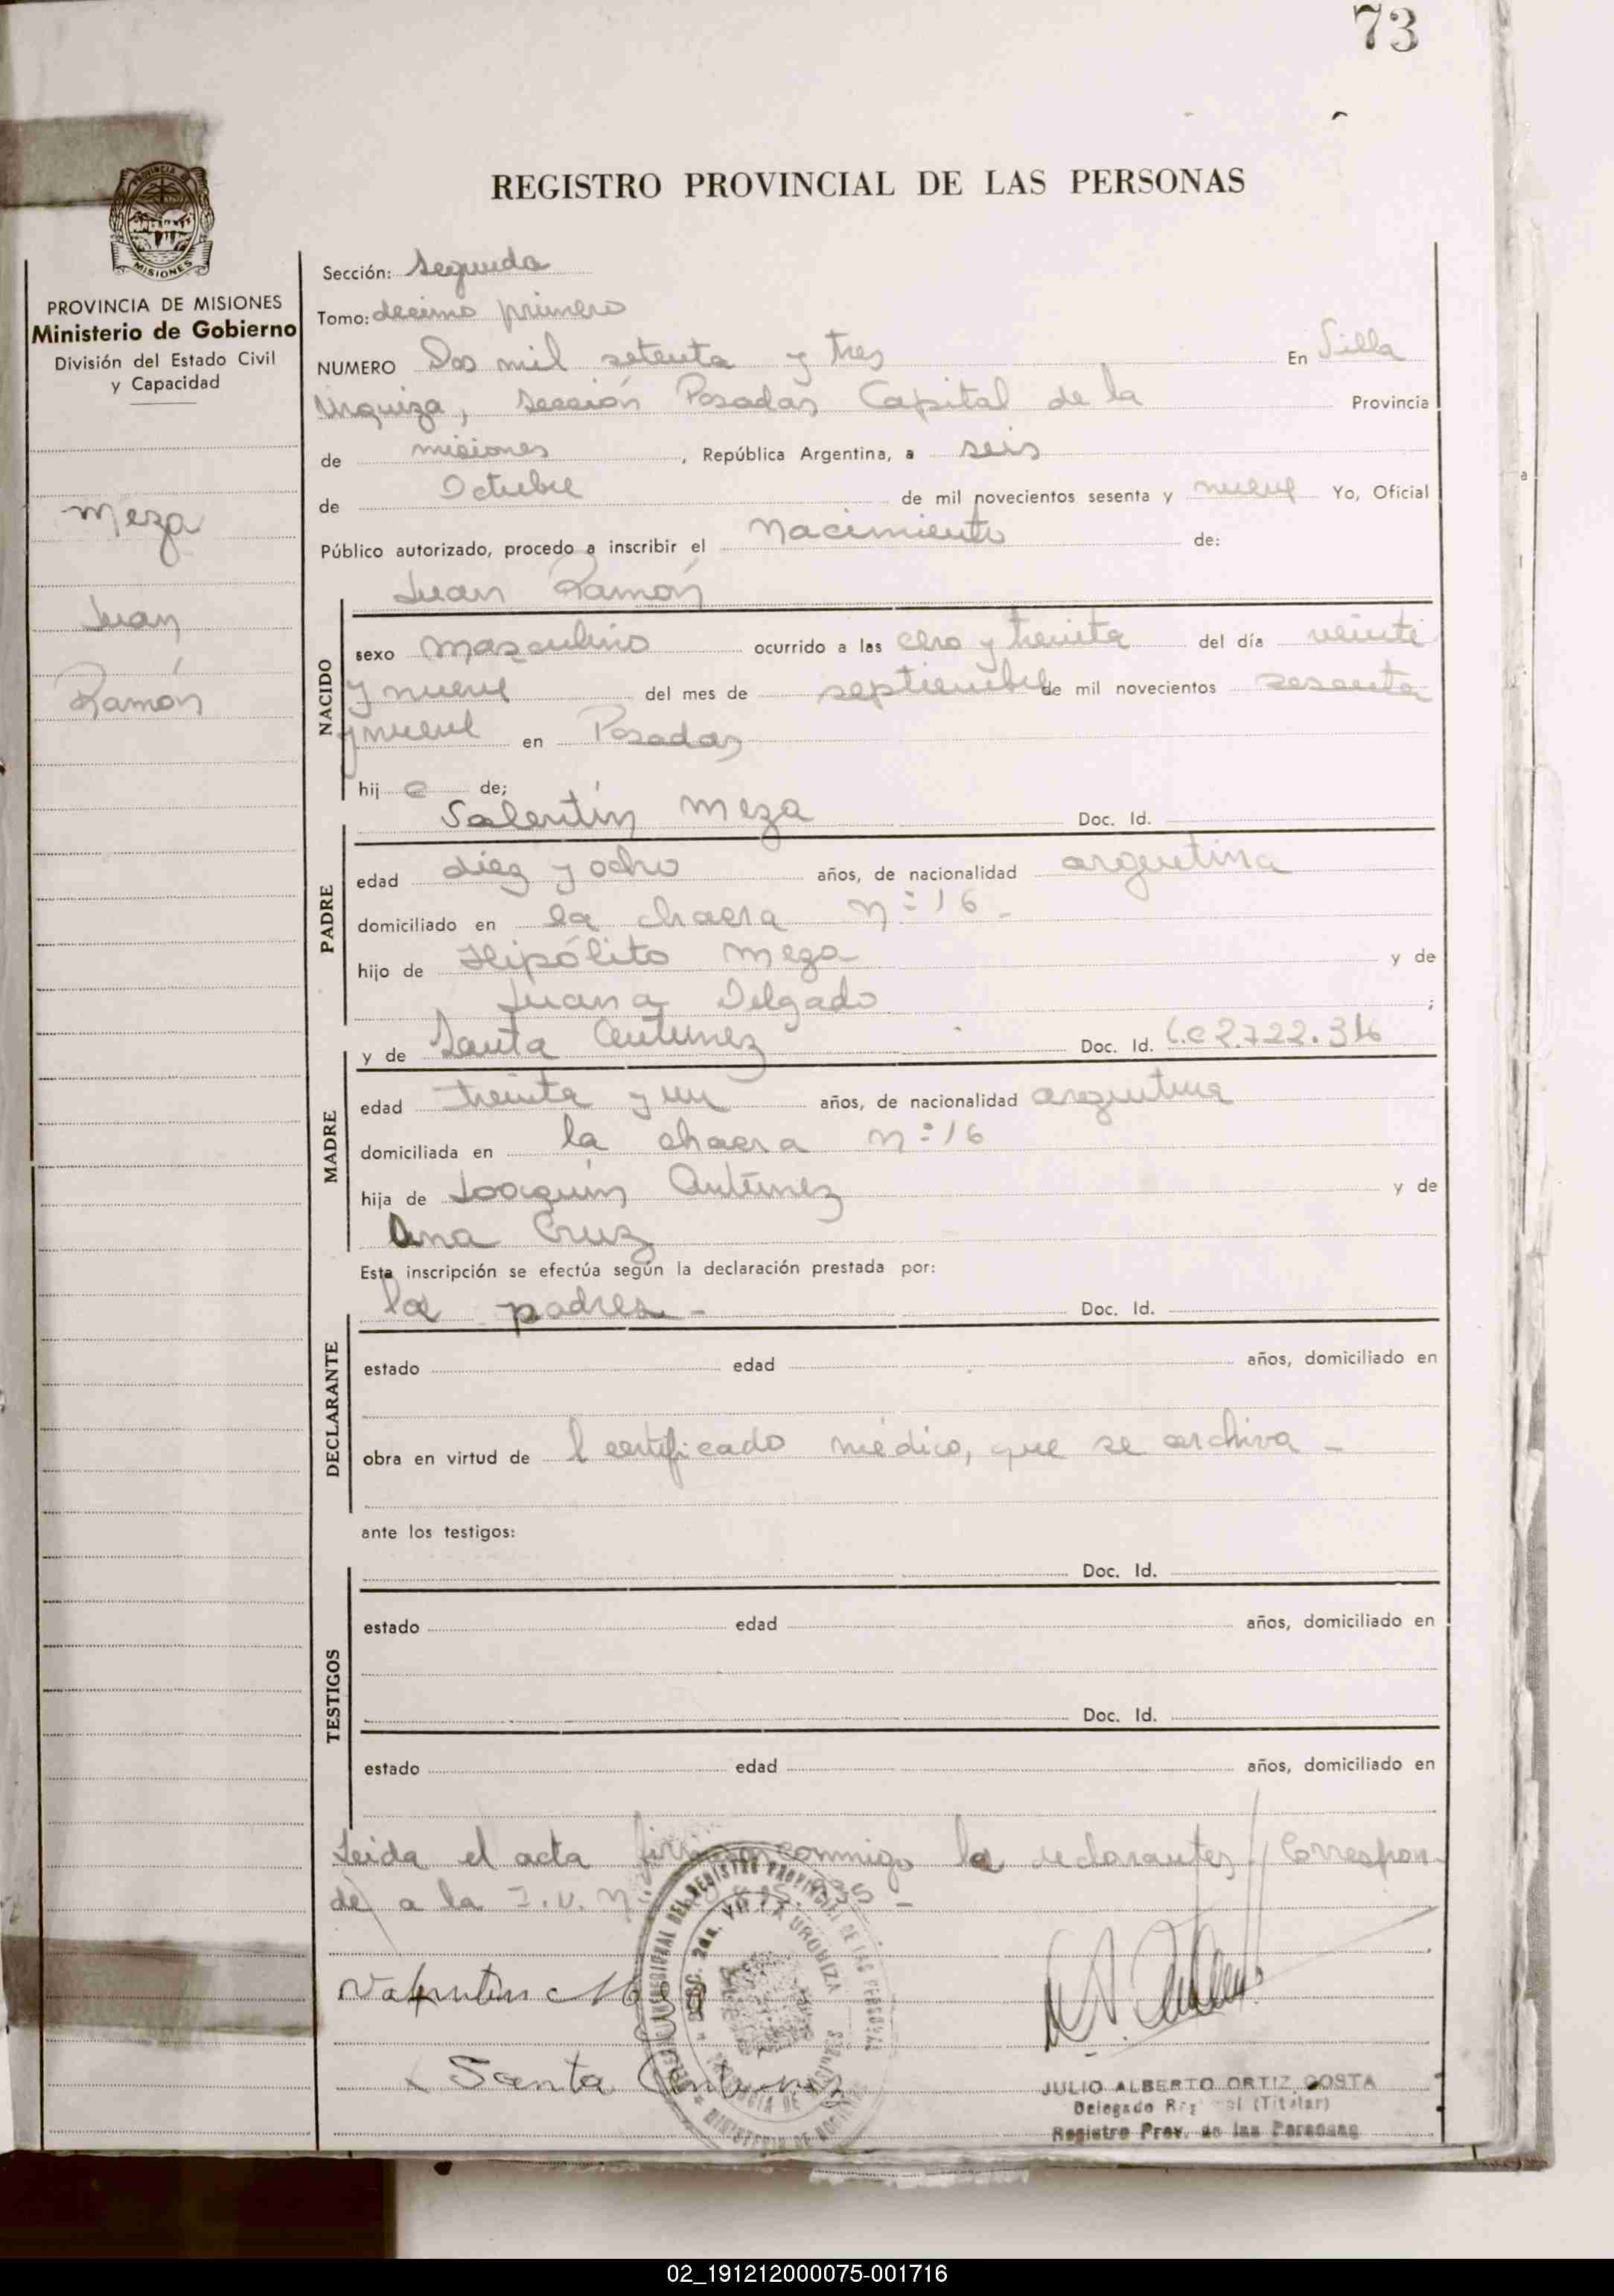 73
REGISTRO PROVINCIAL DE LAS PERSONAS
MISIONES
PROVINCIA DE MISIONES
Ministerio de Gobierno
División del Estado Civil
y Capacidad
Meza
Juan
Ramón
Sección: Segunda
Tomo: decimo primero
NUMERO Dos mil setenta y tres En Villa
Urquiza, sección Posadas Capital de la Provincia
de misiones, República Argentina, a seis
de Octubre de mil novecientos sesenta y nueve Yo, Oficial
Público autorizado, procedo a inscribir el Nacimiento de:
Juan Ramón
NACIDO
sexo masculino ocurrido a las cero y treinta del día veinti
y nueve del mes de septiembre de mil novecientos sesenta
y nueve en Posadas
hij o de;
Valentín Meza Doc. Id.
PADRE
edad diez y ocho años, de nacionalidad argentina
domiciliado en la chacra n:16 -
hijo de Hipólito Meza y de
Juana Delgado ;
y de Santa Antunez Doc. Id. L.C 2.722.316
MADRE
edad treinta y un años, de nacionalidad argentina
domiciliada en la chacra n:16
hija de Joaquín Antúnez y de
Ana Cruz
Esta inscripción se efectúa según la declaración prestada por:
los padres - Doc. Id.
DECLARANTE
estado edad años, domiciliado en
obra en virtud de l certificado médico, que se archiva -
ante los testigos:
Doc. Id.
TESTIGOS
estado edad años, domiciliado en
Doc. Id.
estado edad años, domiciliado en
Leida el acta firman conmigo los declarantes // Correspon-
de) a la I.U.N.
Valentin Meza
Santa Antunez
JULIO ALBERTO ORTIZ COSTA
Delegado (Titular)
Registro Prov. de las Personas
02_191212000075-001716